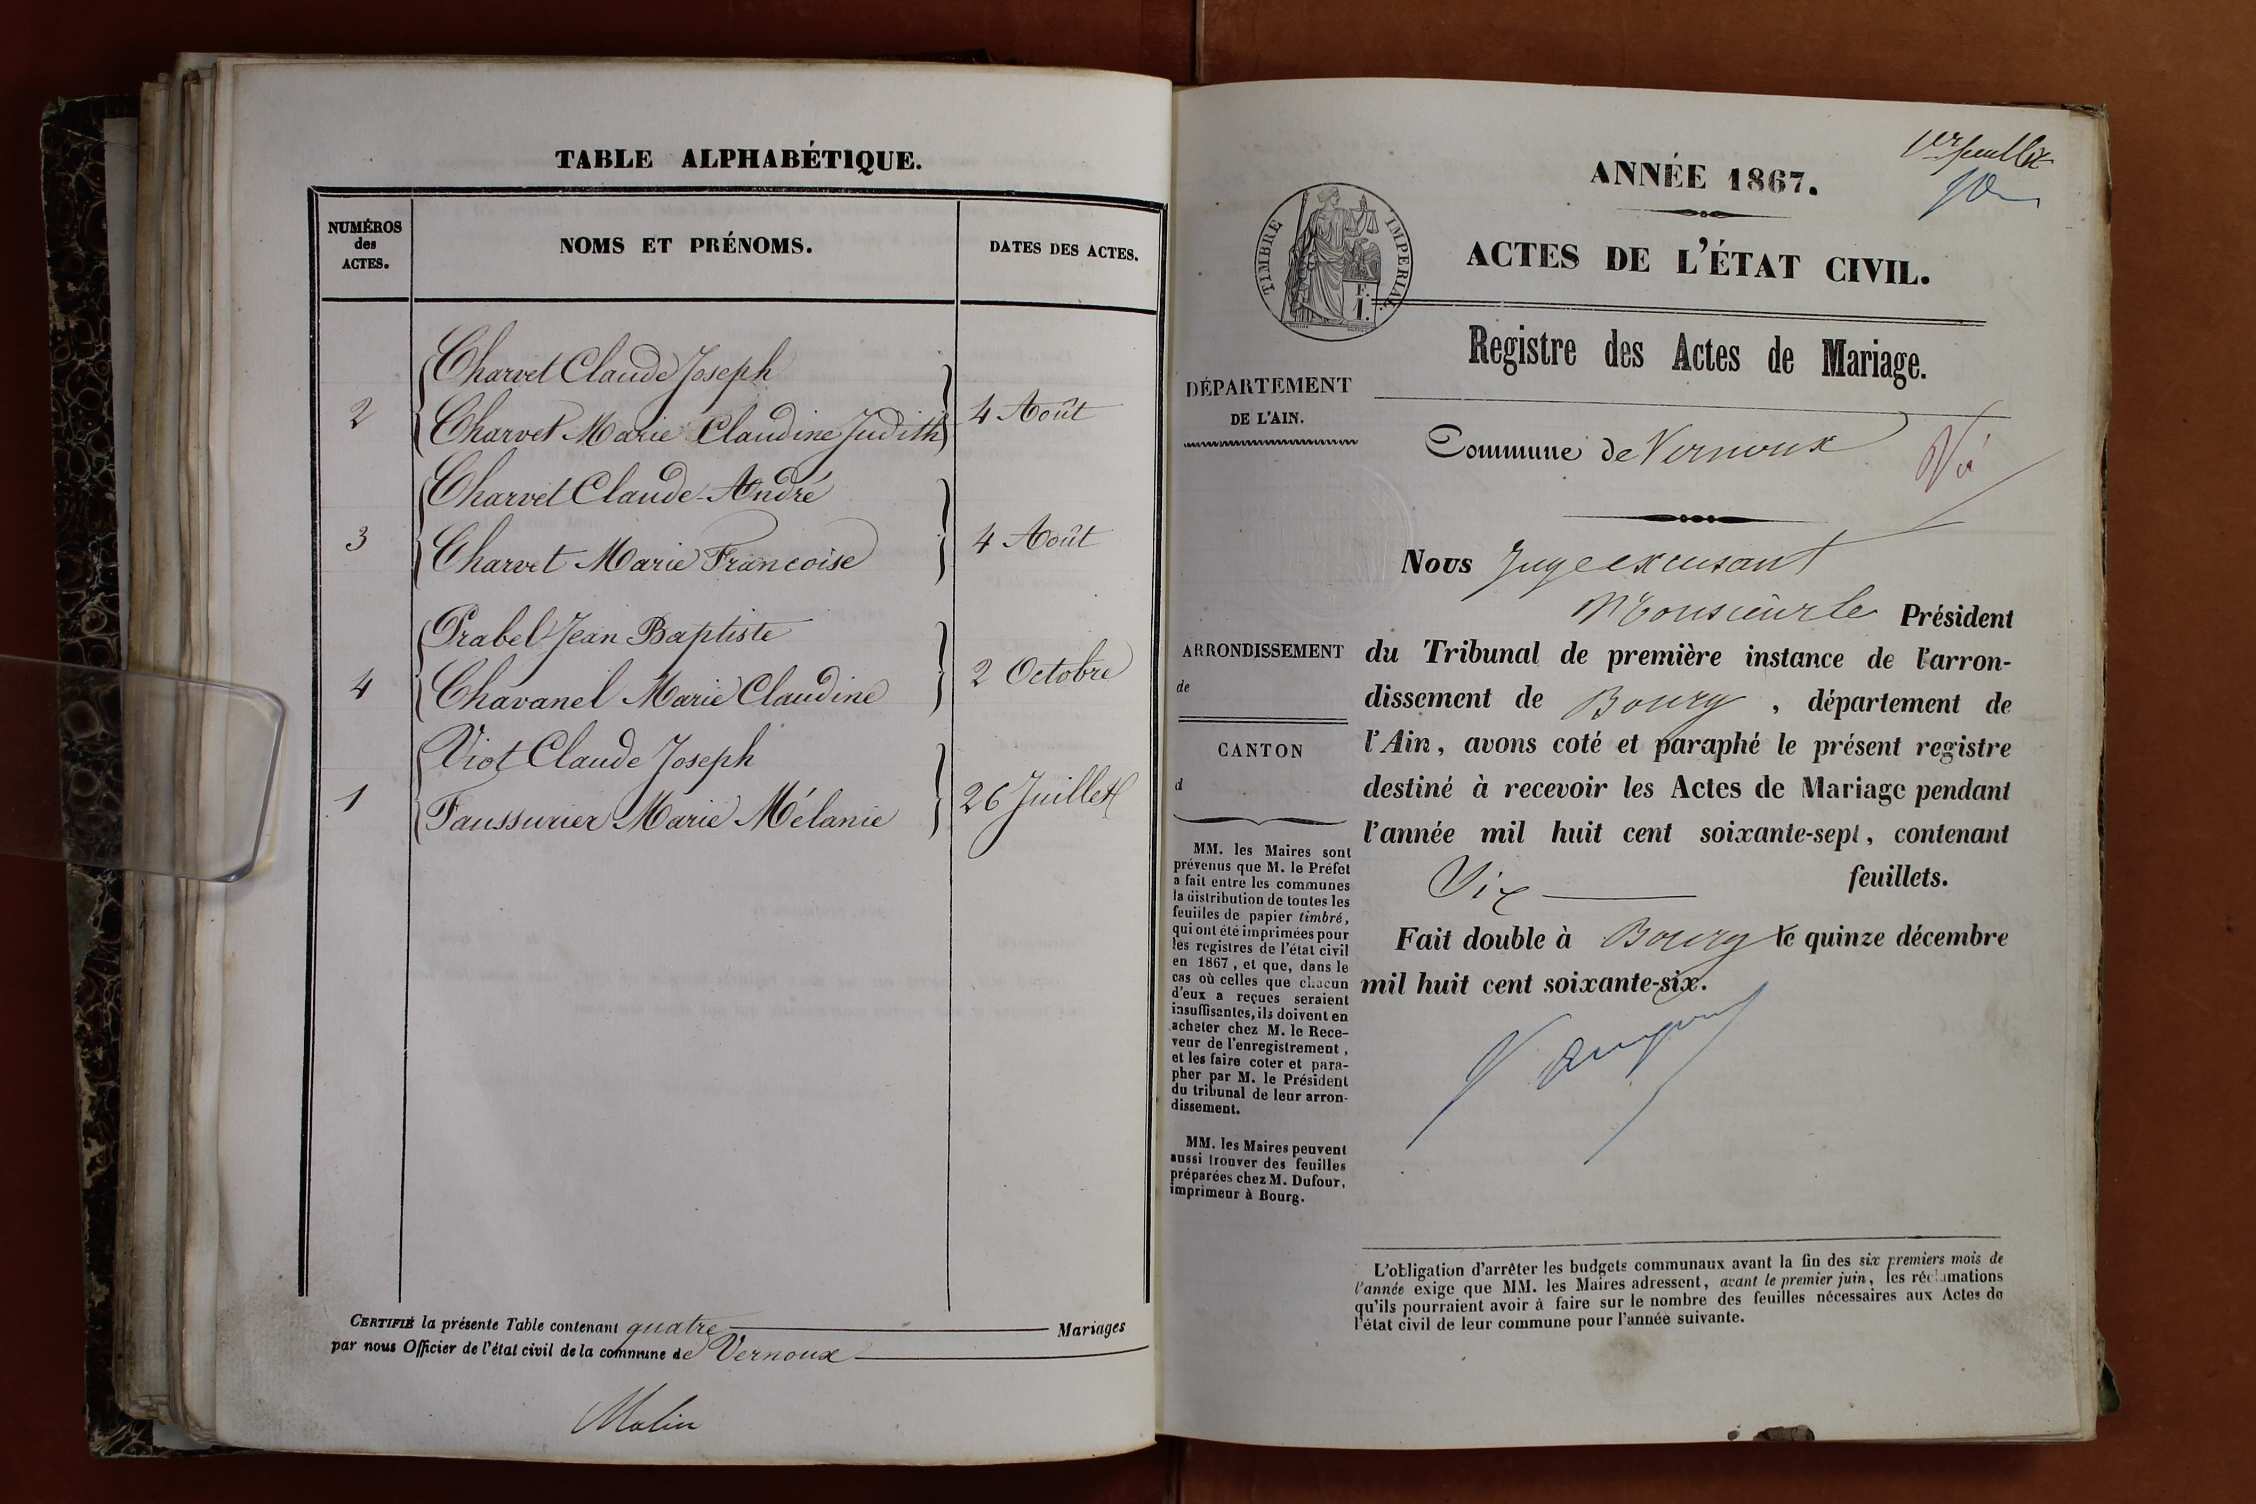 TABLE ALPHABÉTIQUE.
NUMÉROS
des
ACTES.
NOMS ET PRÉNOMS.
DATES DES ACTES.
Charvet Claude Joseph
2 Charvet Marie Claudine Judith 4 Août
Charvet Claude-André
3 Charvet Marie Francoise 4 Août
Prabel Jean Baptiste
4 Chavanel Marie Claudine 2 Octobre
Viot Claude Joseph
1 Faussurier Marie Mélanie 26 Juillet
CERTIFIÉ la présente Table contenant quatre Mariages
par nous Officier de l'état civil de la commune de Vernoux
Molin
1er feuillet
ANNÉE 1867.
TIMBRE IMPERIAL
F.
1.
ACTES DE L'ÉTAT CIVIL.
Registre des Actes de Mariage.
DÉPARTEMENT
DE L'AIN.
Commune de Vernoux
Vu
Nous Juge excusant
Monsieur le Président
ARRONDISSEMENT
de
du Tribunal de première instance de l'arron-
dissement de Bourg, département de
l'Ain, avons coté et paraphé le présent registre
destiné à recevoir les Actes de Mariage pendant
l'année mil huit cent soixante-sept, contenant
Six feuillets.
Fait double à Bourg le quinze décembre
mil huit cent soixante-six.
CANTON
d
MM. les Maires sont
prévenus que M. le Préfet
a fait entre les communes
la distribution de toutes les
feuilles de papier timbré,
qui ont été imprimées pour
les registres de l'état civil
en 1867, et que, dans le
cas où celles que chacun
d'eux a reçues seraient
insuffisantes, ils doivent en
acheter chez M. le Rece-
veur de l'enregistrement,
et les faire coter et para-
pher par M. le Président
du tribunal de leur arron-
dissement.
MM. les Maires peuvent
aussi trouver des feuilles
préparées chez M. Dufour,
imprimeur à Bourg.
L'obligation d'arrêter les budgets communaux avant la fin des six premiers mois de
l'année exige que MM. les Maires adressent, avant le premier juin, les réclamations
qu'ils pourraient avoir à faire sur le nombre des feuilles nécessaires aux Actes de
l'état civil de leur commune pour l'année suivante.